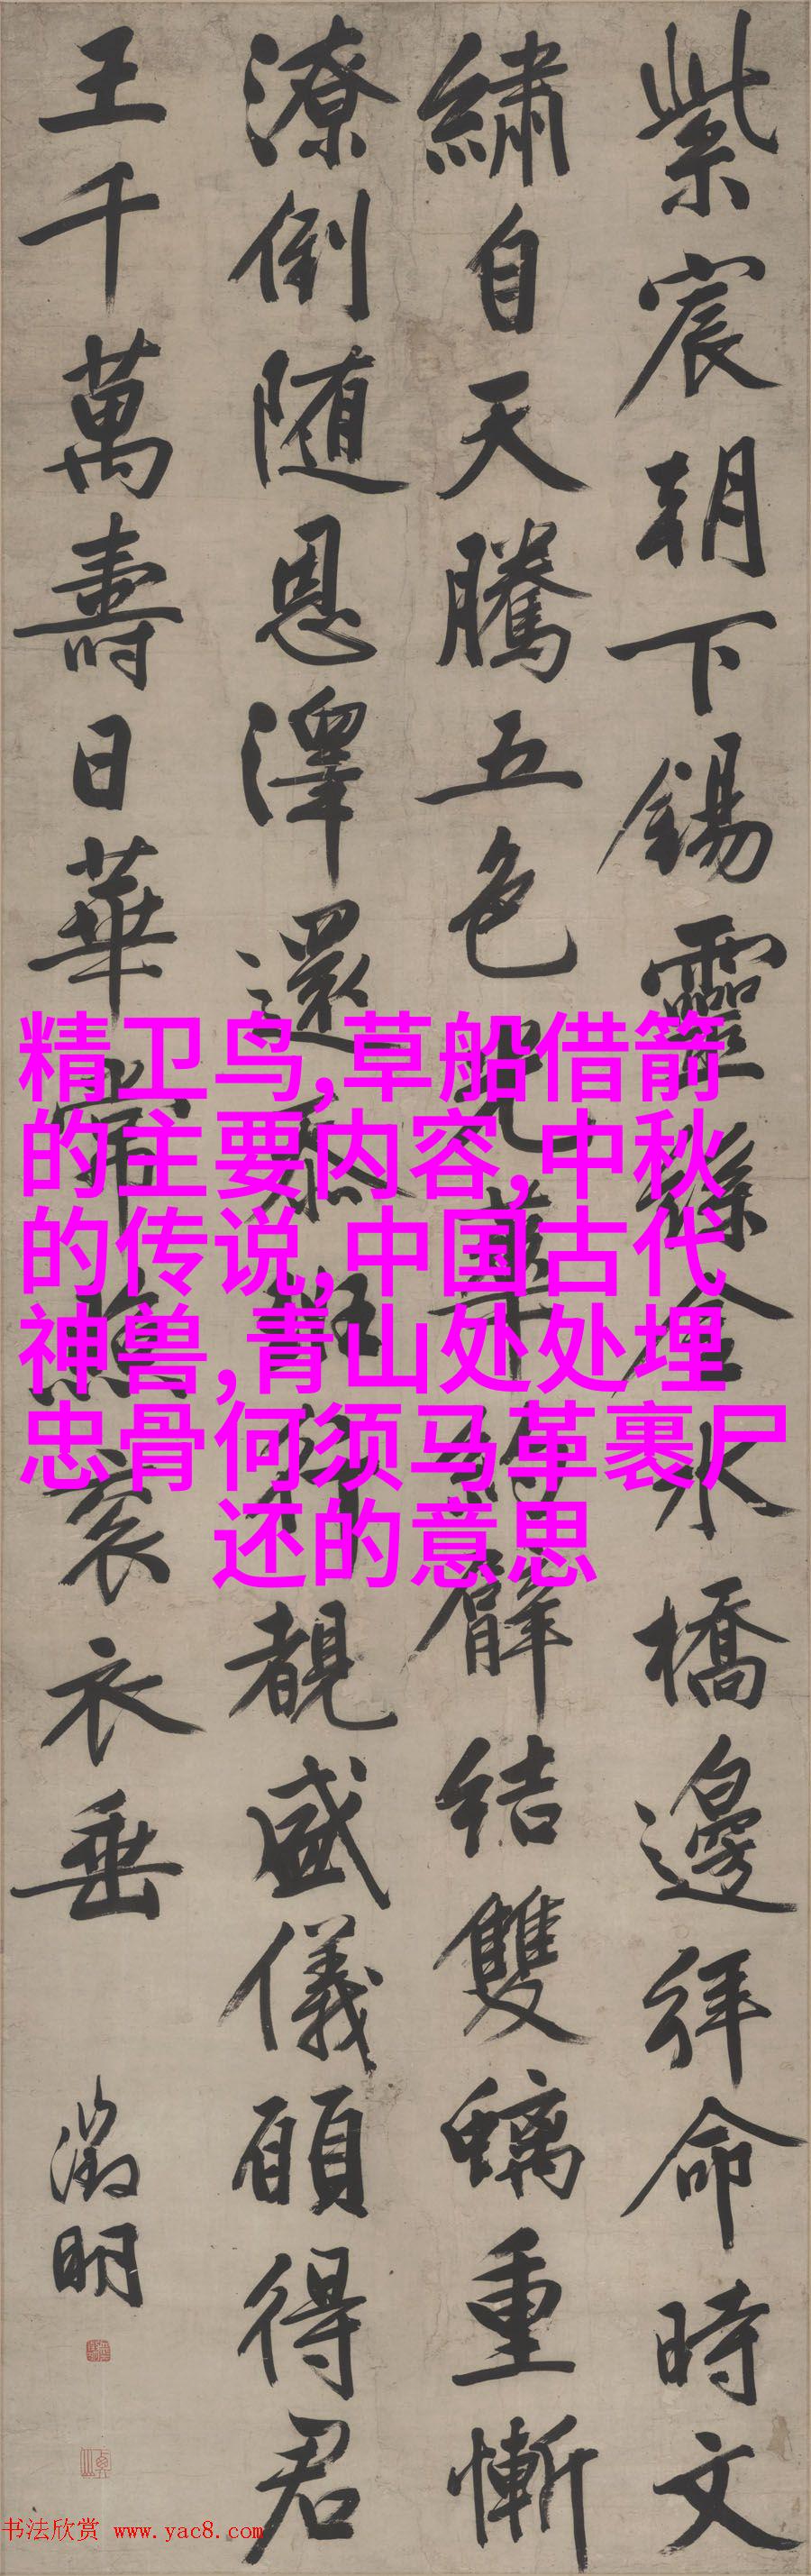 紫宸朝下錫靈絲金水橋邊拜命時文
繡自天騰五色光華約臂結雙螭重慚
潦倒随恩澤還忝班行覩盛儀願得君
王千萬壽日華常照衮衣垂
徵明
精卫鸟,草船借箭
的主要内容,中秋
的传说,中国古代
神兽,青山处处埋
忠骨何须马革裹尸
还的意思
书法欣赏 www.yac8.com